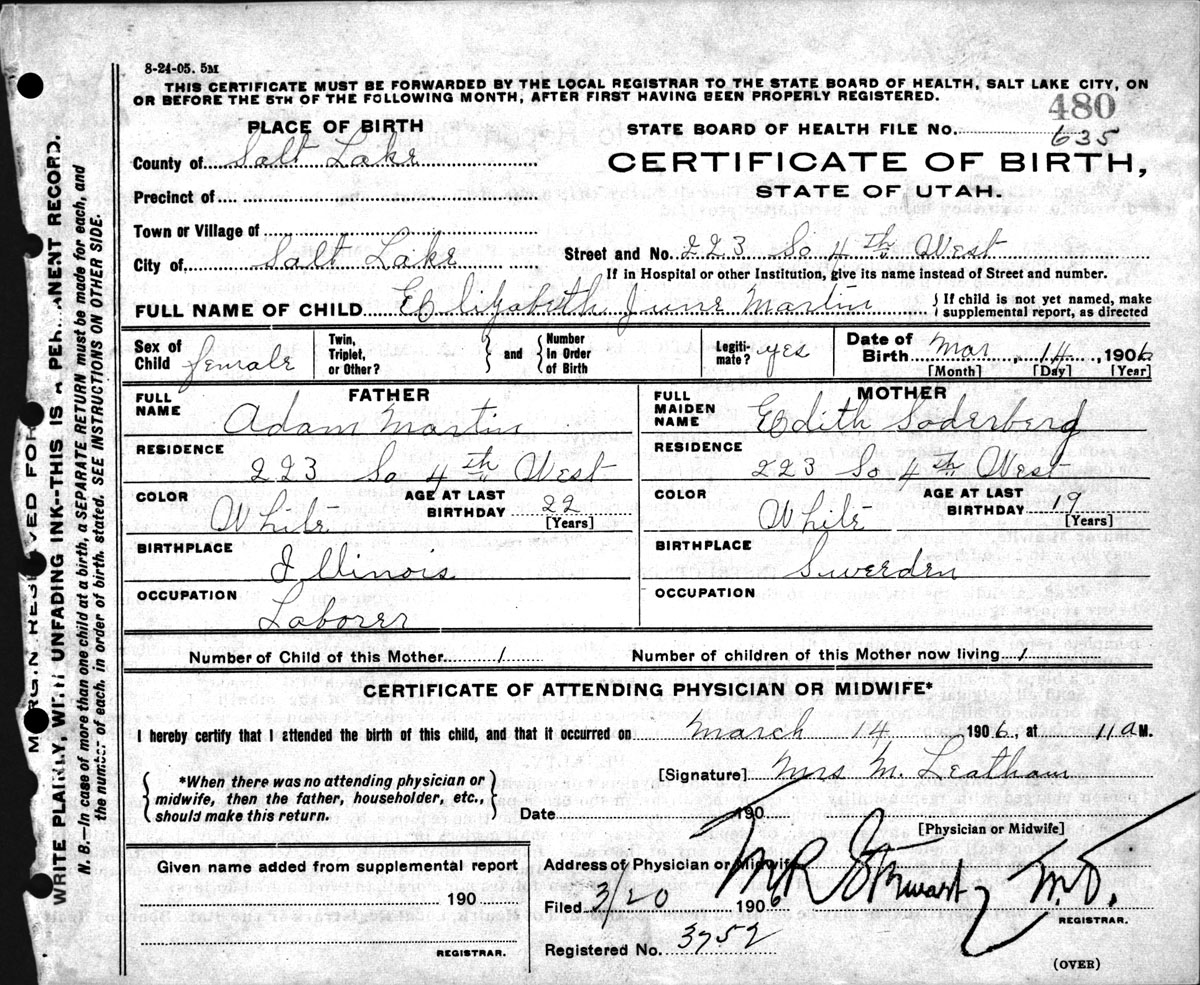 8-24-05. 5M
THIS CERTIFICATE MUST BE FORWARDED BY THE LOCAL REGISTRAR TO THE STATE BOARD OF HEALTH, SALT LAKE CITY, ON
OR BEFORE THE 5TH OF THE FOLLOWING MONTH, AFTER FIRST HAVING BEEN PROPERLY REGISTERED.
480
PLACE OF BIRTH
STATE BOARD OF HEALTH FILE No. 635
County of Salt Lake
CERTIFICATE OF BIRTH,
STATE OF UTAH.
Precinct of
Town or Village of
City of Salt Lake
Street and No. 223 So 4th West
If in Hospital or other Institution, give its name instead of Street and number.
FULL NAME OF CHILD Elizabeth June Martin
If child is not yet named, make
supplemental report, as directed
Sex of Child female
Twin, Triplet, or Other? and Number In Order of Birth
Legitimate? yes
Date of Birth Mar, 14, 1906
[Month] [Day] [Year]
FATHER
FULL NAME Adam Martin
RESIDENCE
223 So 4th West
COLOR White
AGE AT LAST BIRTHDAY 22
[Years]
BIRTHPLACE
Illinois
OCCUPATION
Laborer
MOTHER
FULL MAIDEN NAME Edith Soderberg
RESIDENCE
223 So 4th West
COLOR White
AGE AT LAST BIRTHDAY 19
[Years]
BIRTHPLACE
Swerden
OCCUPATION
Number of Child of this Mother 1
Number of children of this Mother now living 1
CERTIFICATE OF ATTENDING PHYSICIAN OR MIDWIFE*
I hereby certify that I attended the birth of this child, and that it occurred on March 14 1906, at 11 a M.
*When there was no attending physician or
midwife, then the father, householder, etc.,
should make this return.
[Signature] Mrs M. Leatham
Date 190
[Physician or Midwife]
Given name added from supplemental report
190
REGISTRAR.
Address of Physician or Midwife
Filed 3/20 1906 Stewart M.D.
REGISTRAR.
Registered No. 3752
(OVER)
MARGIN RESERVED FOR
WRITE PLAINLY, WITH UNFADING INK--THIS IS A PERMANENT RECORD.
N. B.—In case of more than one child at a birth, a SEPARATE RETURN must be made for each, and
the number of each, in order of birth, stated. SEE INSTRUCTIONS ON OTHER SIDE.